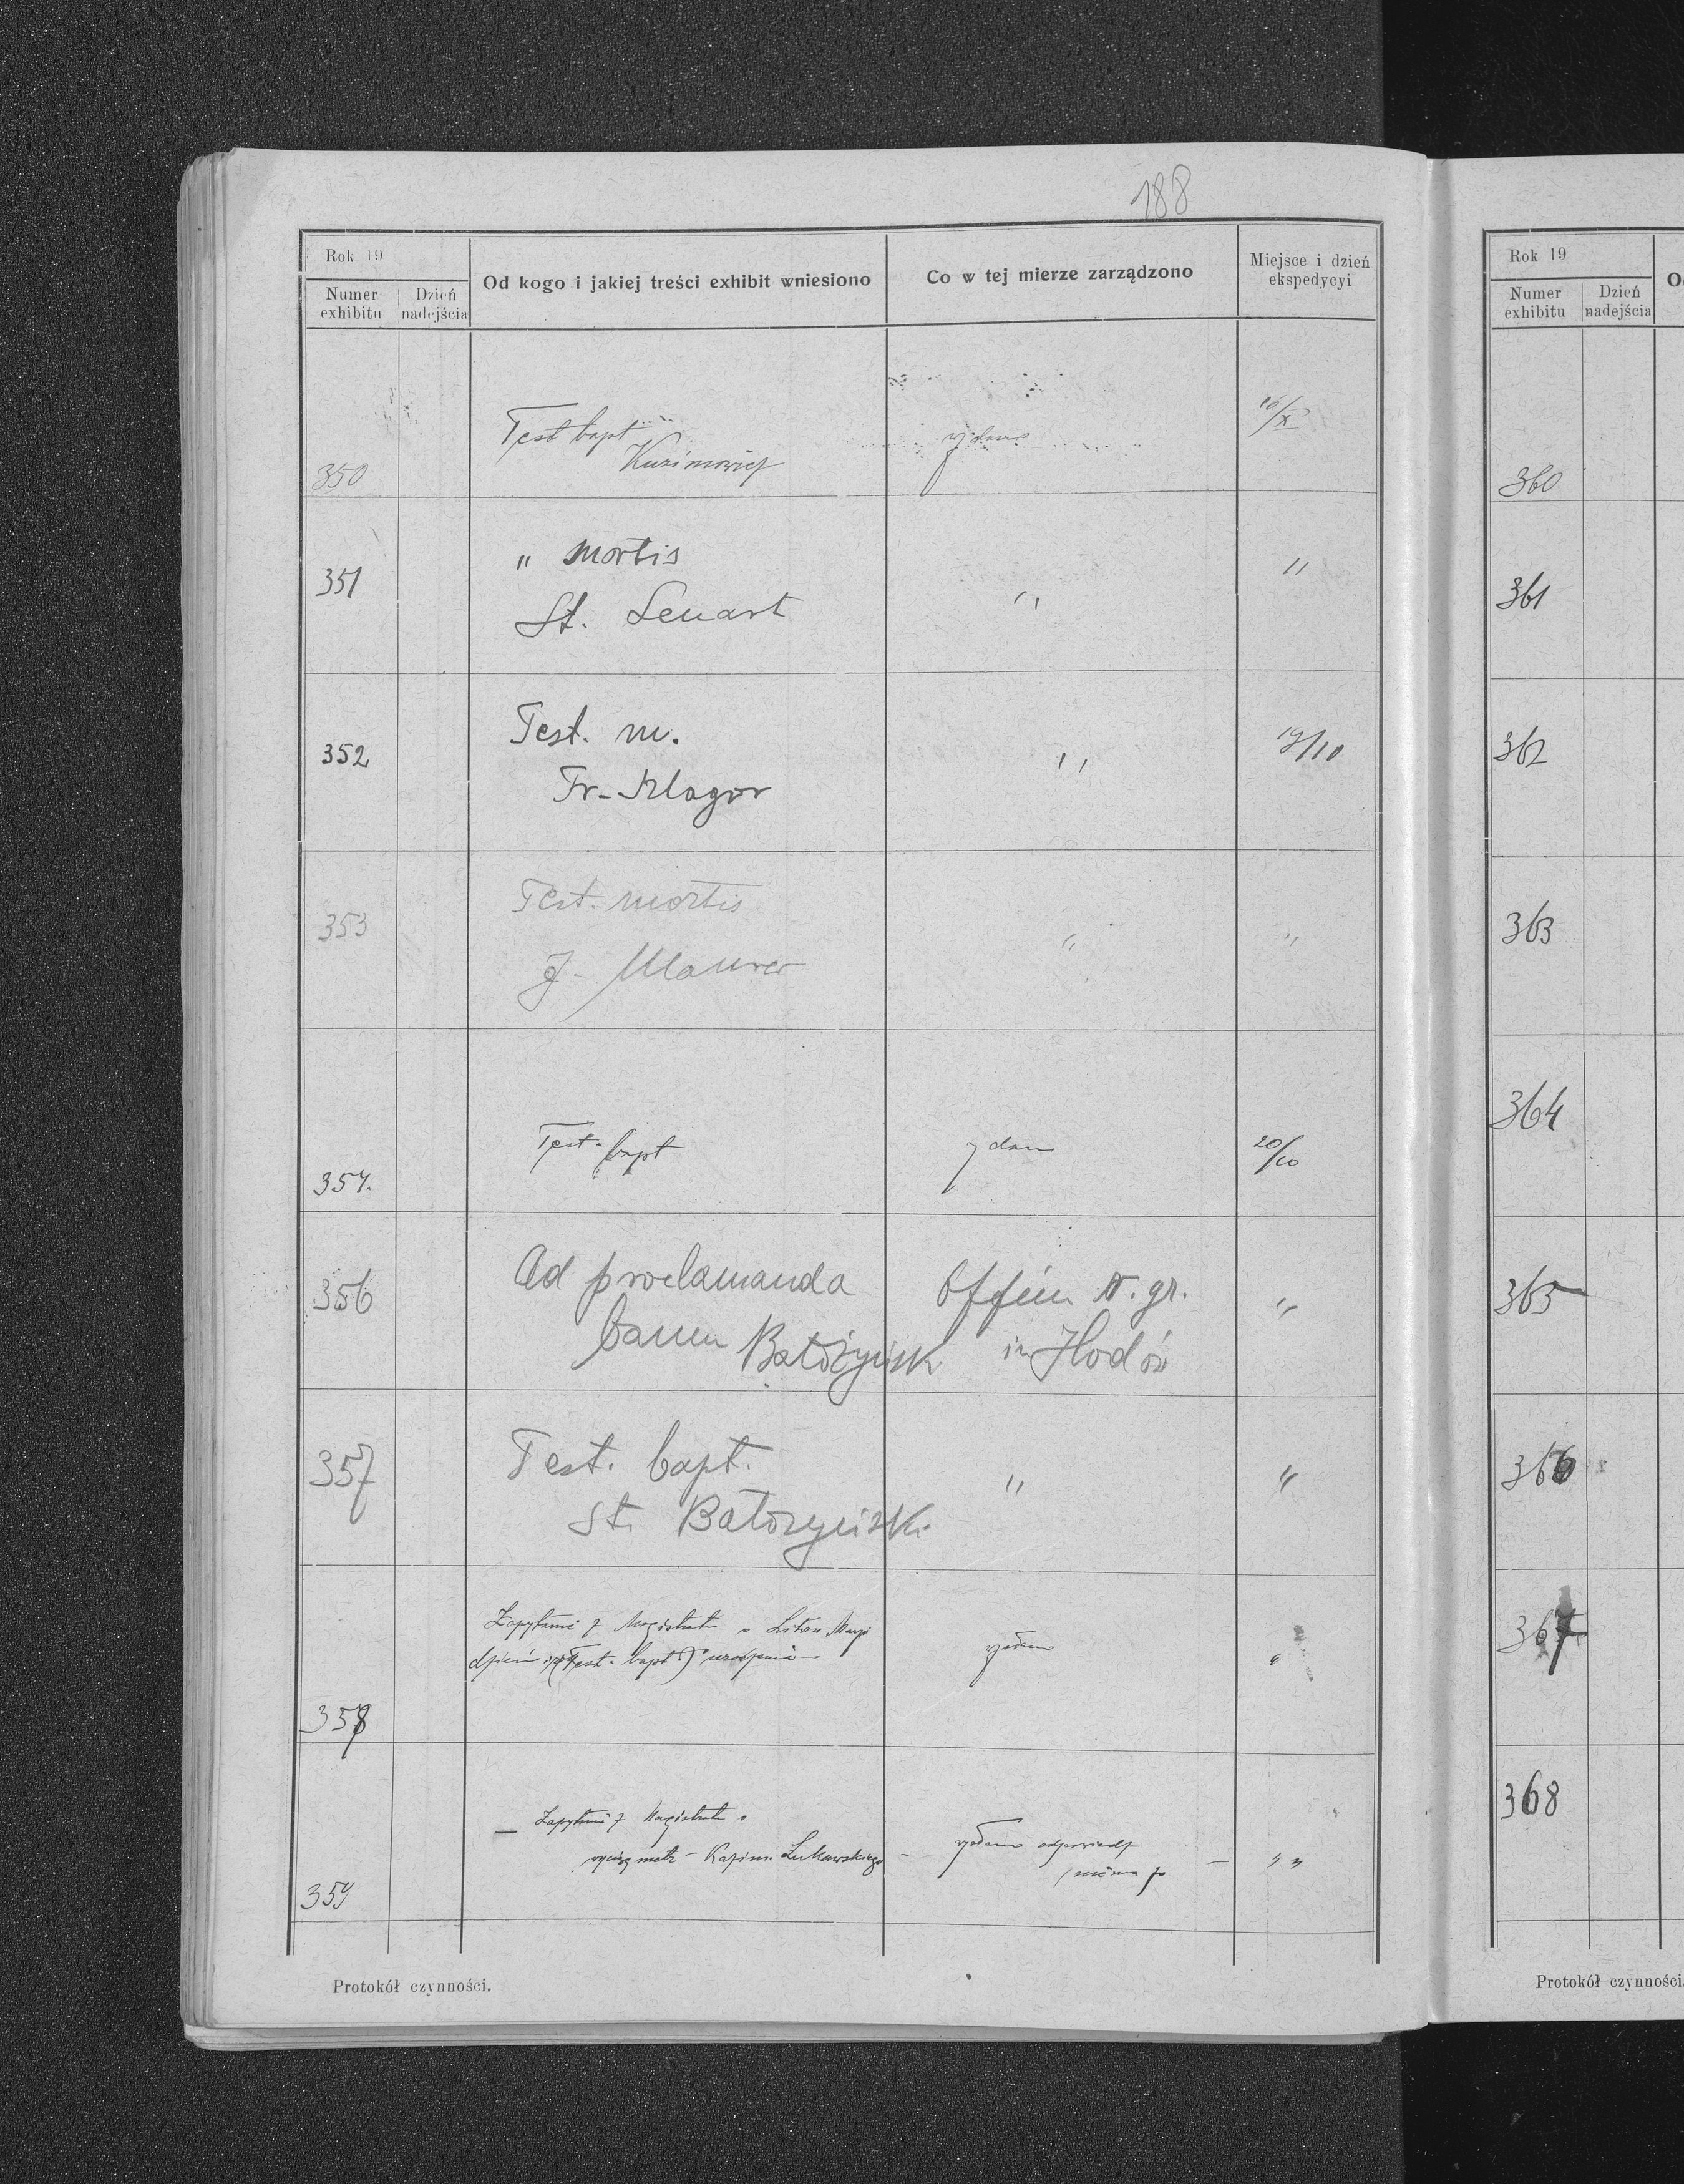 188
Rok 19
Numer exhibitu
Dzień nadejścia
Od kogo i jakiej treści exhibit wniesiono
Co w tej mierze zarządzono
Miejsce i dzień ekspedycyi
Test bapt
16/X
350
Kuzimowicz
" mortis
351
St. Lenart
" "
Test. m.
352
" 19/10
Fr. Klagor
Test. mortis
353
" "
J. Maurer
Test. bapt
20/10
354.
Ad proclamanda
Offciu r. gr.
356
"
bannu
in Hodów
Test. bapt.
357
" "
St. Batorzyński
Zapytanie z Magistrat o
dzień (Test. bapt.) urodzenia
wydano
"
358
Zapytanie z Magistratu o
wyciąg metr - Kazim Lukawskiego -
wydano odpowiedz
- " "
359
Protokół czynności.
Rok 19
Numer exhibitu
Dzień nadejścia
360
361
362
363
364
365
366
367
368
Protokół czynności